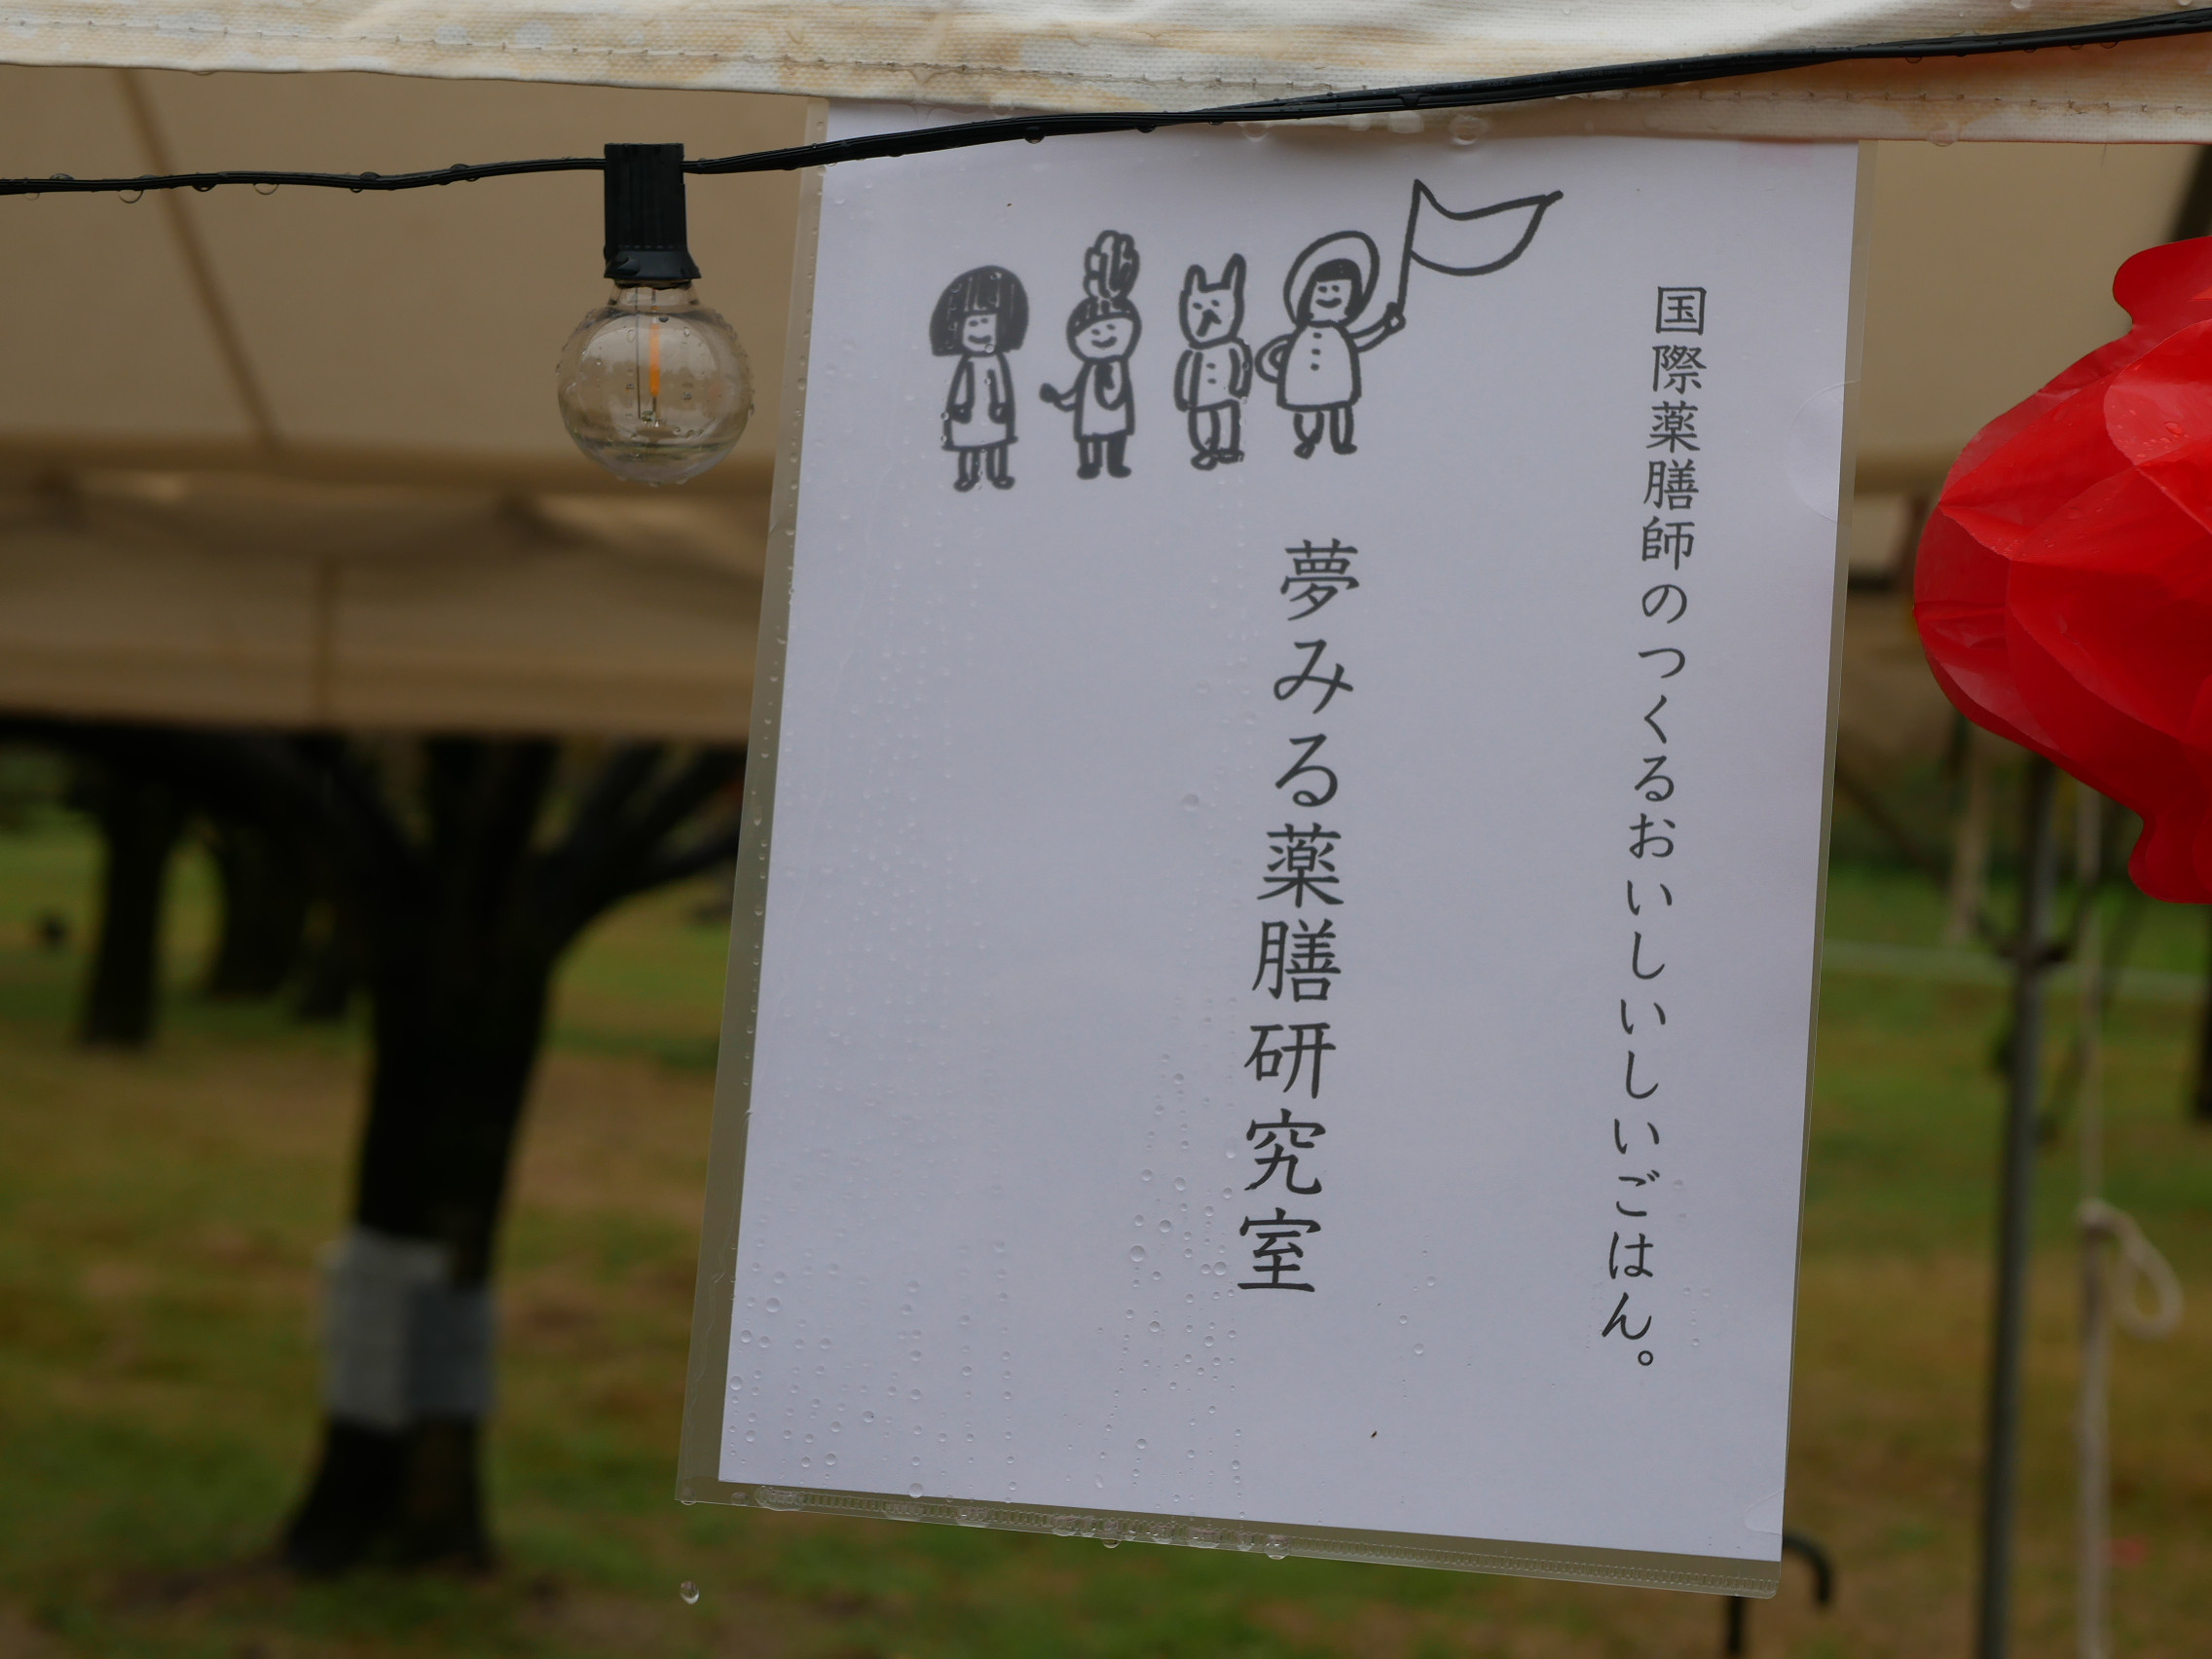 国際薬膳師のつくるおいしいしいごはん。
夢みる薬膳研究室